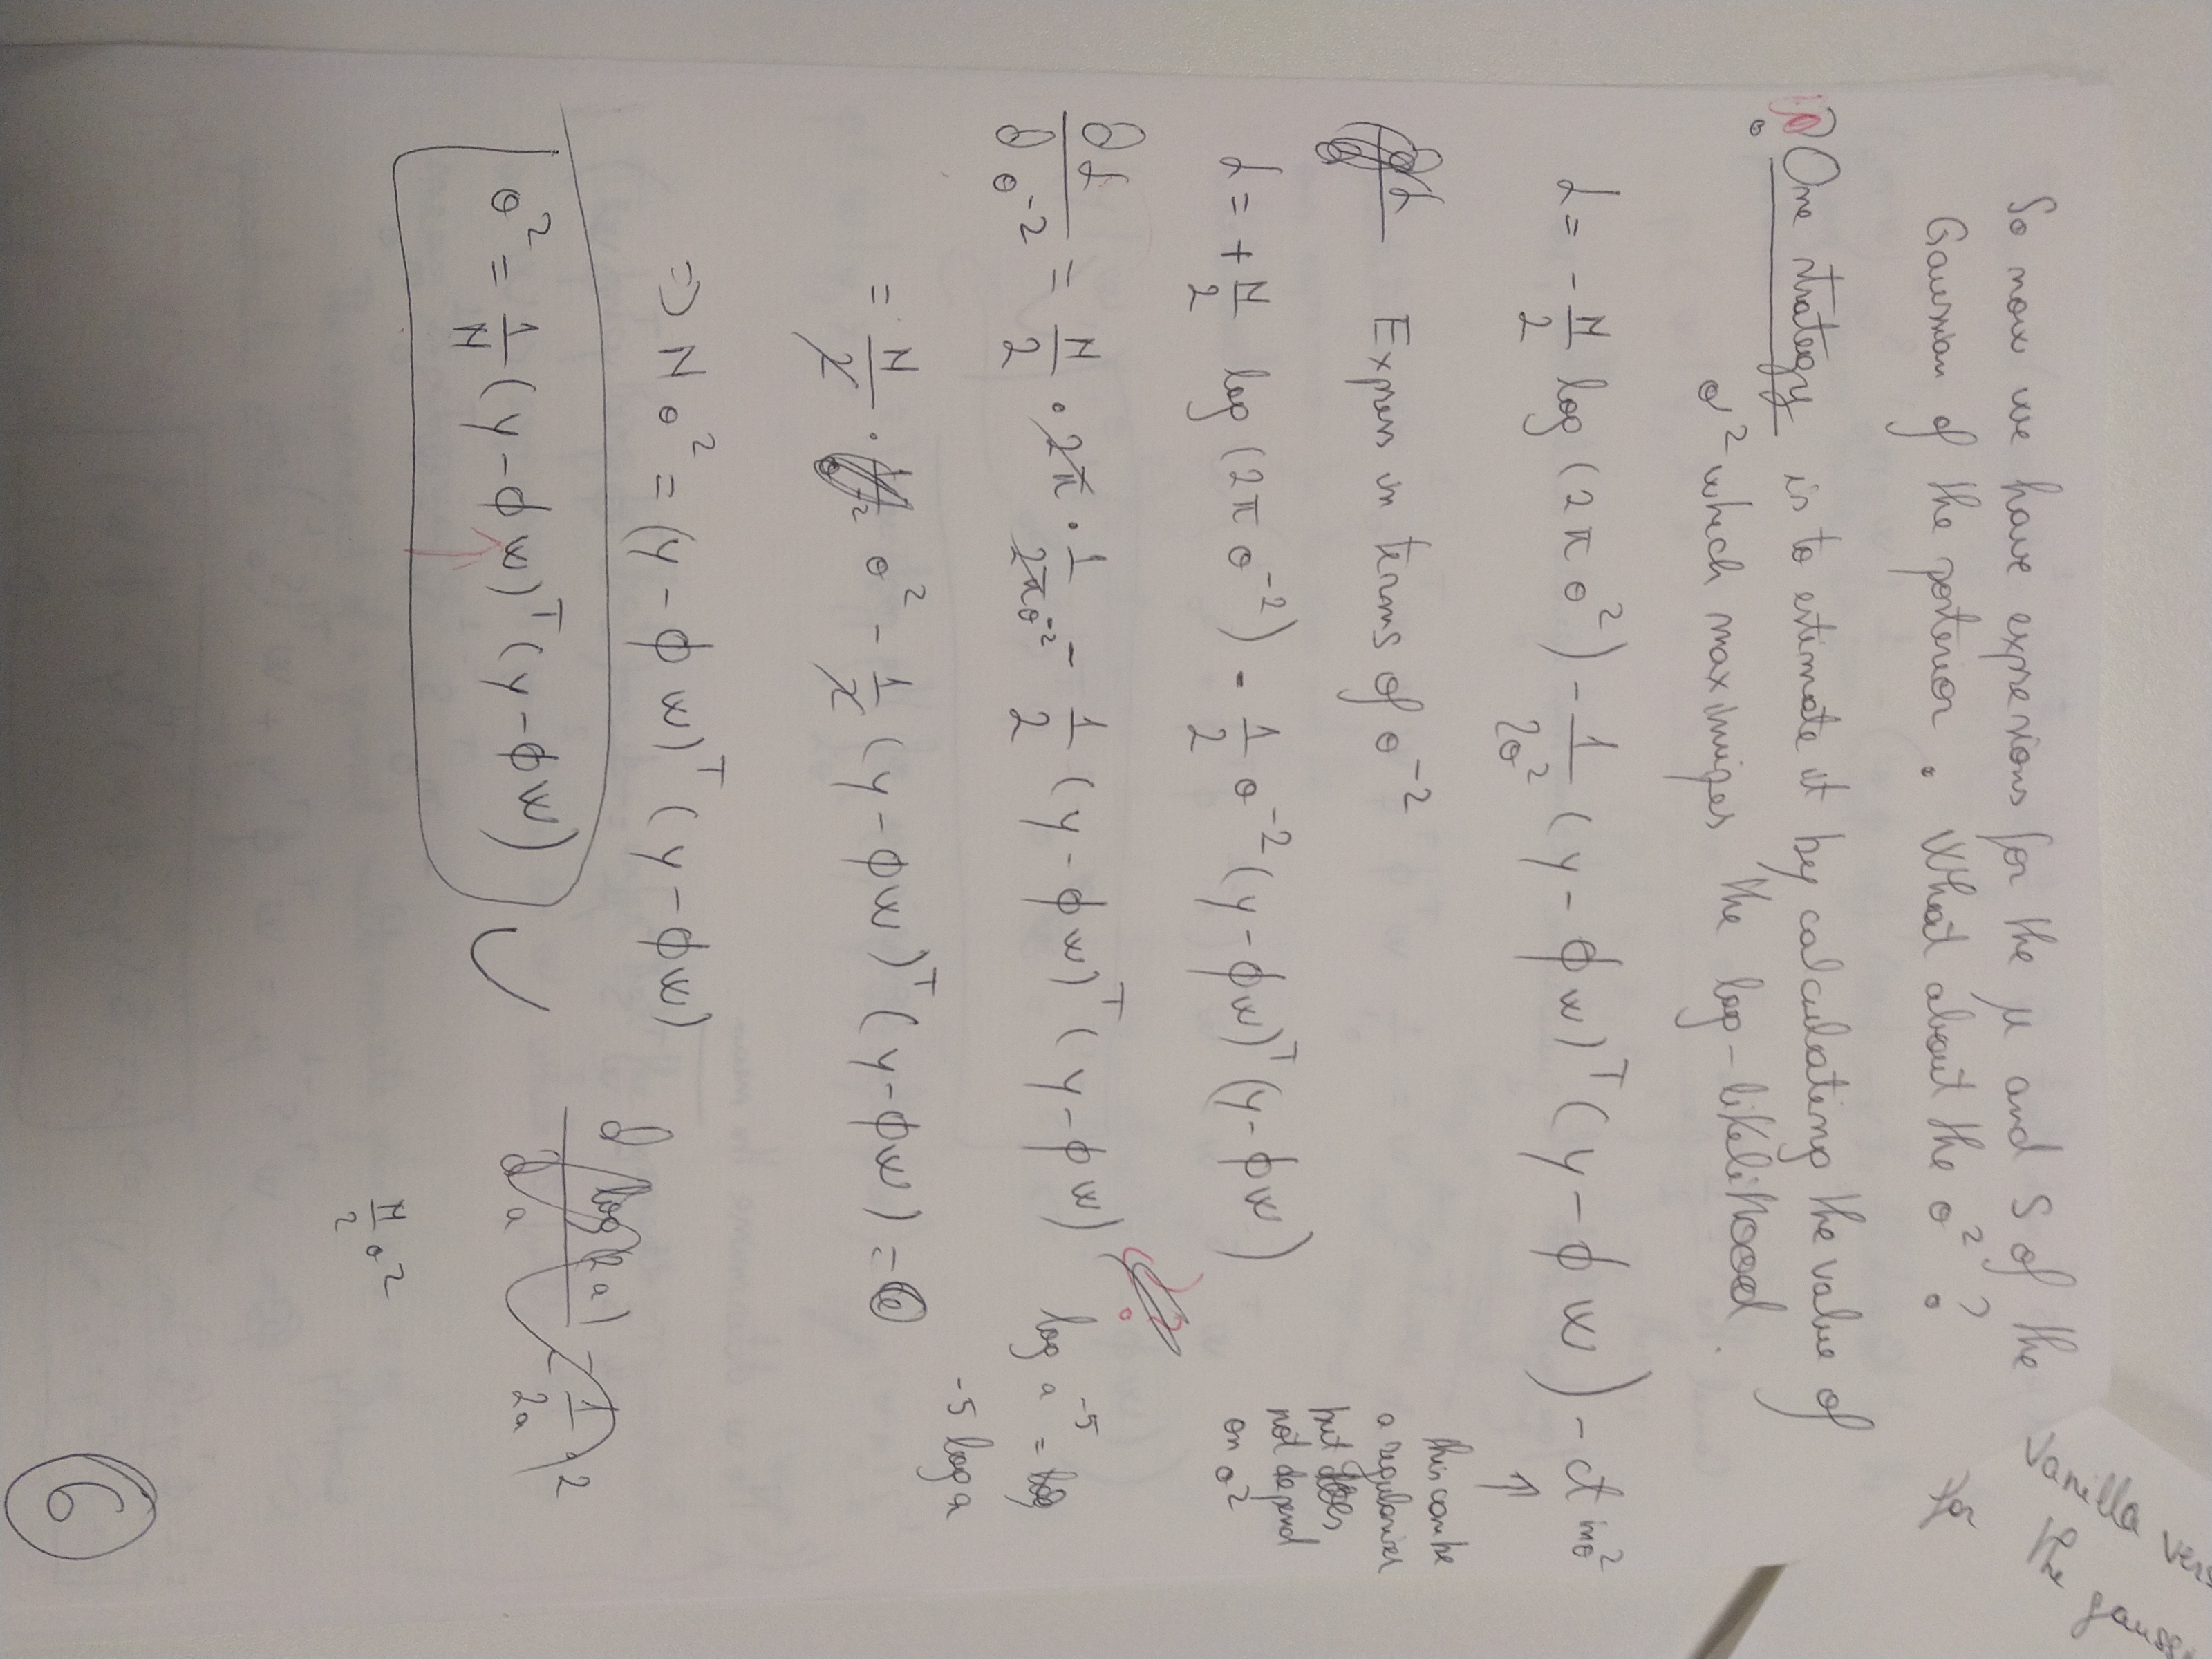 So now we have expresions for the μ and S of the
Gaussian of the posterior. What about the σ² ?
One strategy is to estimate it by calculating the value of
σ² which maximizes the log-likelihood.
L = - N/2 log (2π σ²) - 1/2σ² (y - ϕw)ᵀ (y - ϕ w) - ct in σ²
↑
this can be
a regulariser
but does
not depend
on σ²
∂L Express in terms of σ⁻²
L = + N/2 log (2π σ⁻²) - 1/2 σ⁻² (y - ϕw)ᵀ (y - ϕw)
∂L/∂σ⁻² = N/2 · 2π · 1/2πσ⁻² - 1/2 (y - ϕw)ᵀ (y - ϕw)
log a⁻⁵ = log
-5 log a
= N/2 · σ² - 1/2 (y - ϕw)ᵀ (y - ϕw) = 0
=> N σ² = (y - ϕ w)ᵀ (y - ϕw)
∂ log(2a)/∂a = 1/2a · 2
σ² = 1/N (y - ϕw)ᵀ (y - ϕw) ✓
N/2 σ²
6
Vanilla
the
for